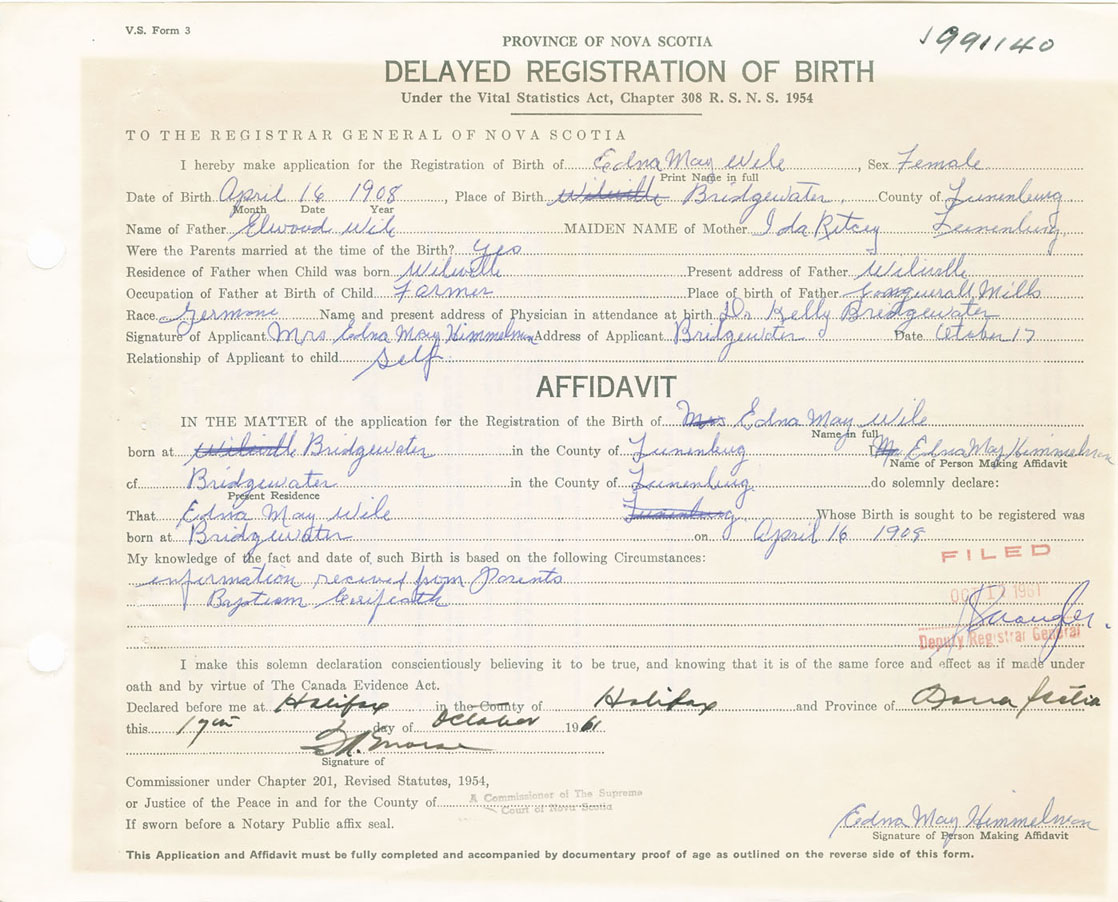 V.S. Form 3
1991140
PROVINCE OF NOVA SCOTIA
DELAYED REGISTRATION OF BIRTH
Under the Vital Statistics Act, Chapter 308 R. S. N. S. 1954
TO THE REGISTRAR GENERAL OF NOVA SCOTIA
I hereby make application for the Registration of Birth of Edna May Wile, Sex Female
Print Name in full
Date of Birth April 16 1908, Place of Birth Wileville Bridgewater, County of Lunenburg
Month Date Year
Name of Father Elwood Wile MAIDEN NAME of Mother Ida Ritcey Lunenburg
Were the Parents married at the time of the Birth? Yes
Residence of Father when Child was born Wileville Present address of Father Wileville
Occupation of Father at Birth of Child Farmer Place of birth of Father Conquerall Mills
Race Germone Name and present address of Physician in attendance at birth Dr Kelly Bridgewater
Signature of Applicant Mrs. Edna May Himmelman Address of Applicant Bridgewater Date October 17
Relationship of Applicant to child Self
AFFIDAVIT
IN THE MATTER of the application for the Registration of the Birth of Mrs Edna May Wile
Name in full
born at Wileville Bridgewater in the County of Lunenburg I Mrs Edna May Himmelman
Name of Person Making Affidavit
of Bridgewater in the County of Lunenburg do solemnly declare:
Present Residence
That Edna May Wile Lunenburg, Whose Birth is sought to be registered was
born at Bridgewater on April 16 1908
My knowledge of the fact and date of such Birth is based on the following Circumstances:
information received from Parents
Baptism
FILED
OCT 1961
Deputy Registrar General
I make this solemn declaration conscientiously believing it to be true, and knowing that it is of the same force and effect as if made under
oath and by virtue of The Canada Evidence Act.
Declared before me at Halifax in the County of Halifax and Province of Nova Scotia
this 17th day of October 1961
Signature of
Commissioner under Chapter 201, Revised Statutes, 1954,
or Justice of the Peace in and for the County of A Commissioner of The Supreme
Court of Nova Scotia
If sworn before a Notary Public affix seal.
Edna May Himmelman
Signature of Person Making Affidavit
This Application and Affidavit must be fully completed and accompanied by documentary proof of age as outlined on the reverse side of this form.